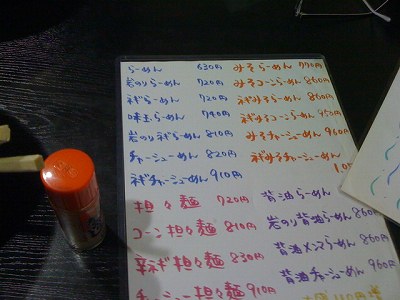 らーめん 630円
岩のりらーめん 720円
ネギらーめん 720円
味玉らーめん
岩のりネギらーめん 810円
チャーシューめん 820円
ネギチャーシューめん 910円
みそらーめん 770円
みそコーンらーめん 860円
ネギみそらーめん 860円
ネギみそコーンらーめん 950円
みそチャーシューめん 960円
ネギみそチャーシューめん
担々麺 720円
コーン担々麺 810円
辛ネギ担々麺 830円
チャーシュー担々麺 910円
背油らーめん
岩のり背油らーめん 860
背油メンマらーめん 860円
背油チャーシューめん 960円